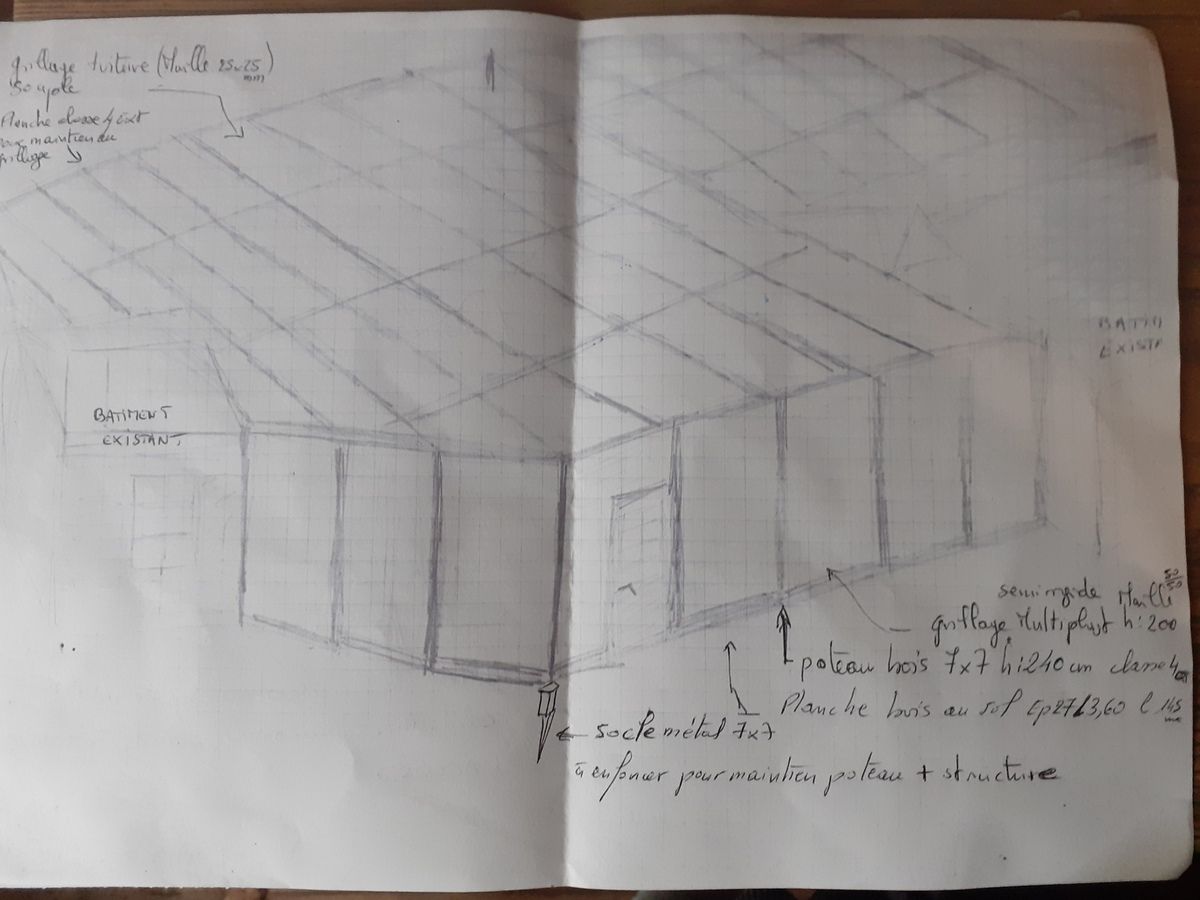 grillage toiture (Maille 25x25
mm)
souple
Planche classe 4 ext
pour maintien du
grillage
BATIMENT
EXISTANT
BATIM
EXISTA
semi rigide Maille 50/50
grillage Multiplast h: 200
poteau bois 7x7 h: 240 cm classe 4
Planche bois au sol Ep27 L3,60 l 145
socle métal 7x7
à enfoncer pour maintien poteau + structure